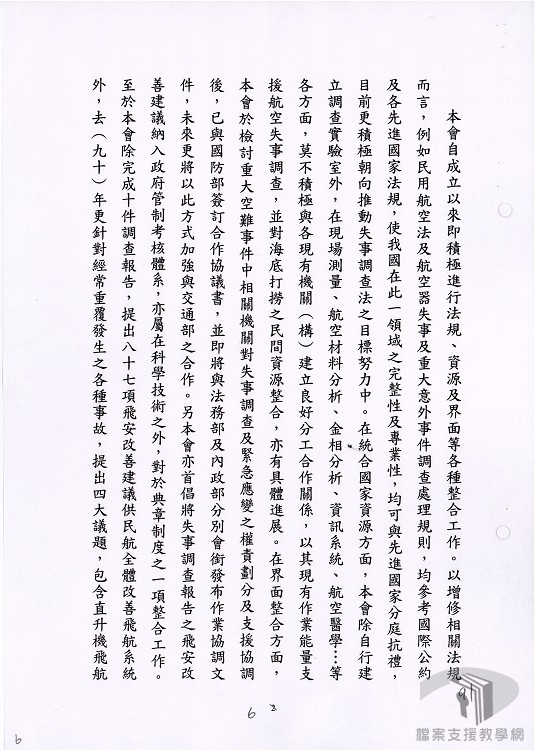 本會自成立以來即積極進行法規、資源及界面等各種整合工作。以增修相關法規
而言，例如民用航空法及航空器失事及重大意外事件調查處理規則，均參考國際公約
及各先進國家法規，使我國在此一領域之完整性及專業性，均可與先進國家分庭抗禮，
目前更積極朝向推動失事調查法之目標努力中。在統合國家資源方面，本會除自行建
立調查實驗室外，在現場測量、航空材料分析、金相分析、資訊系統、航空醫學…等
各方面，莫不積極與各現有機關（構）建立良好分工合作關係，以其現有作業能量支
援航空失事調查，並對海底打撈之民間資源整合，亦有具體進展。在界面整合方面，
本會於檢討重大空難事件中相關機關對失事調查及緊急應變之權責劃分及支援協調
後，已與國防部簽訂合作協議書，並即將與法務部及內政部分別會銜發布作業協調文
件，未來更將以此方式加強與交通部之合作。另本會亦首倡將失事調查報告之飛安改
善建議納入政府管制考核體系，亦屬在科學技術之外，對於典章制度之一項整合工作。
至於本會除完成十件調查報告，提出八十七項飛安改善建議供民航全體改善飛航系統
外，去（九十）年更針對經常重覆發生之各種事故，提出四大議題，包含直升機飛航
3
6
6
91
檔案支援教學網